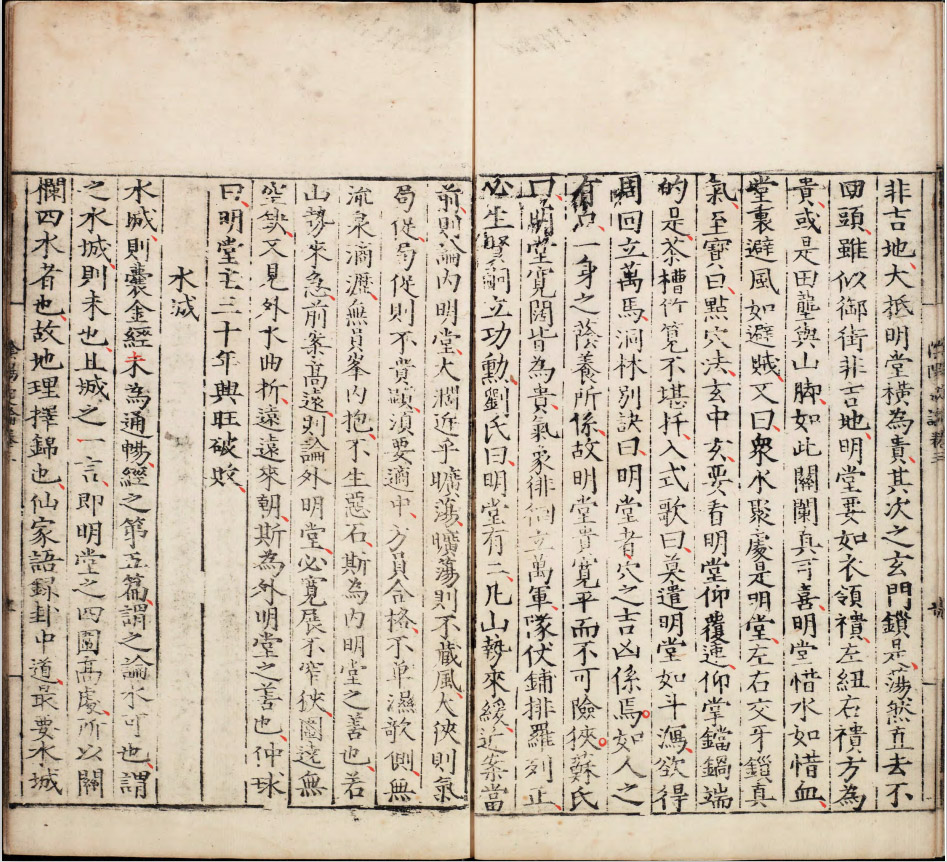 非吉地大抵明堂橫為貴其次之玄門鎖是蕩然直去不
回頭雖似御街非吉地明堂要如衣領襀左紐右襀方為
貴或是田壟與山脚如此關闌真可喜明堂惜水如惜血
堂裏避風如避賊又曰衆水聚處是明堂左右交牙鎖真
氣至寶曰點穴法玄中玄要看明堂仰覆連仰掌鐺鍋端
的是茶槽竹筧不堪扦入式歌曰莫遣明堂如斗瀉欲得
周回立萬馬洞林別訣曰明堂者穴之吉凶係焉如人之
有 一身之蔭養所係故明堂貴寬平而不可險狹蘇氏
曰明堂寬闊皆為貴氣象徘徊立萬軍隊伏鋪排羅列正
必生賢嗣立功勳劉氏曰明堂有二凡山勢來緩近案當
前則論內明堂大濶近乎曠蕩曠蕩則不藏風大狹則氣
局促局促則不貴顯須要適中方員合格不卑濕欹側無
流泉滴瀝無員峯內抱不生惡石斯為內明堂之善也若
山勢來急前案高遠則論外明堂必寬展不窄狹圍遶無
空缺又見外水曲折遠遠來朝斯為外明堂之善也仲球
曰明堂主三十年興旺破敗
水城
水城則囊金經未為通暢經之第五篇謂之論水可也謂
之水城則未也且城之一言即明堂之四圍高處所以關
欄四水者也故地理擇錦也仙家語録封中道最要水城